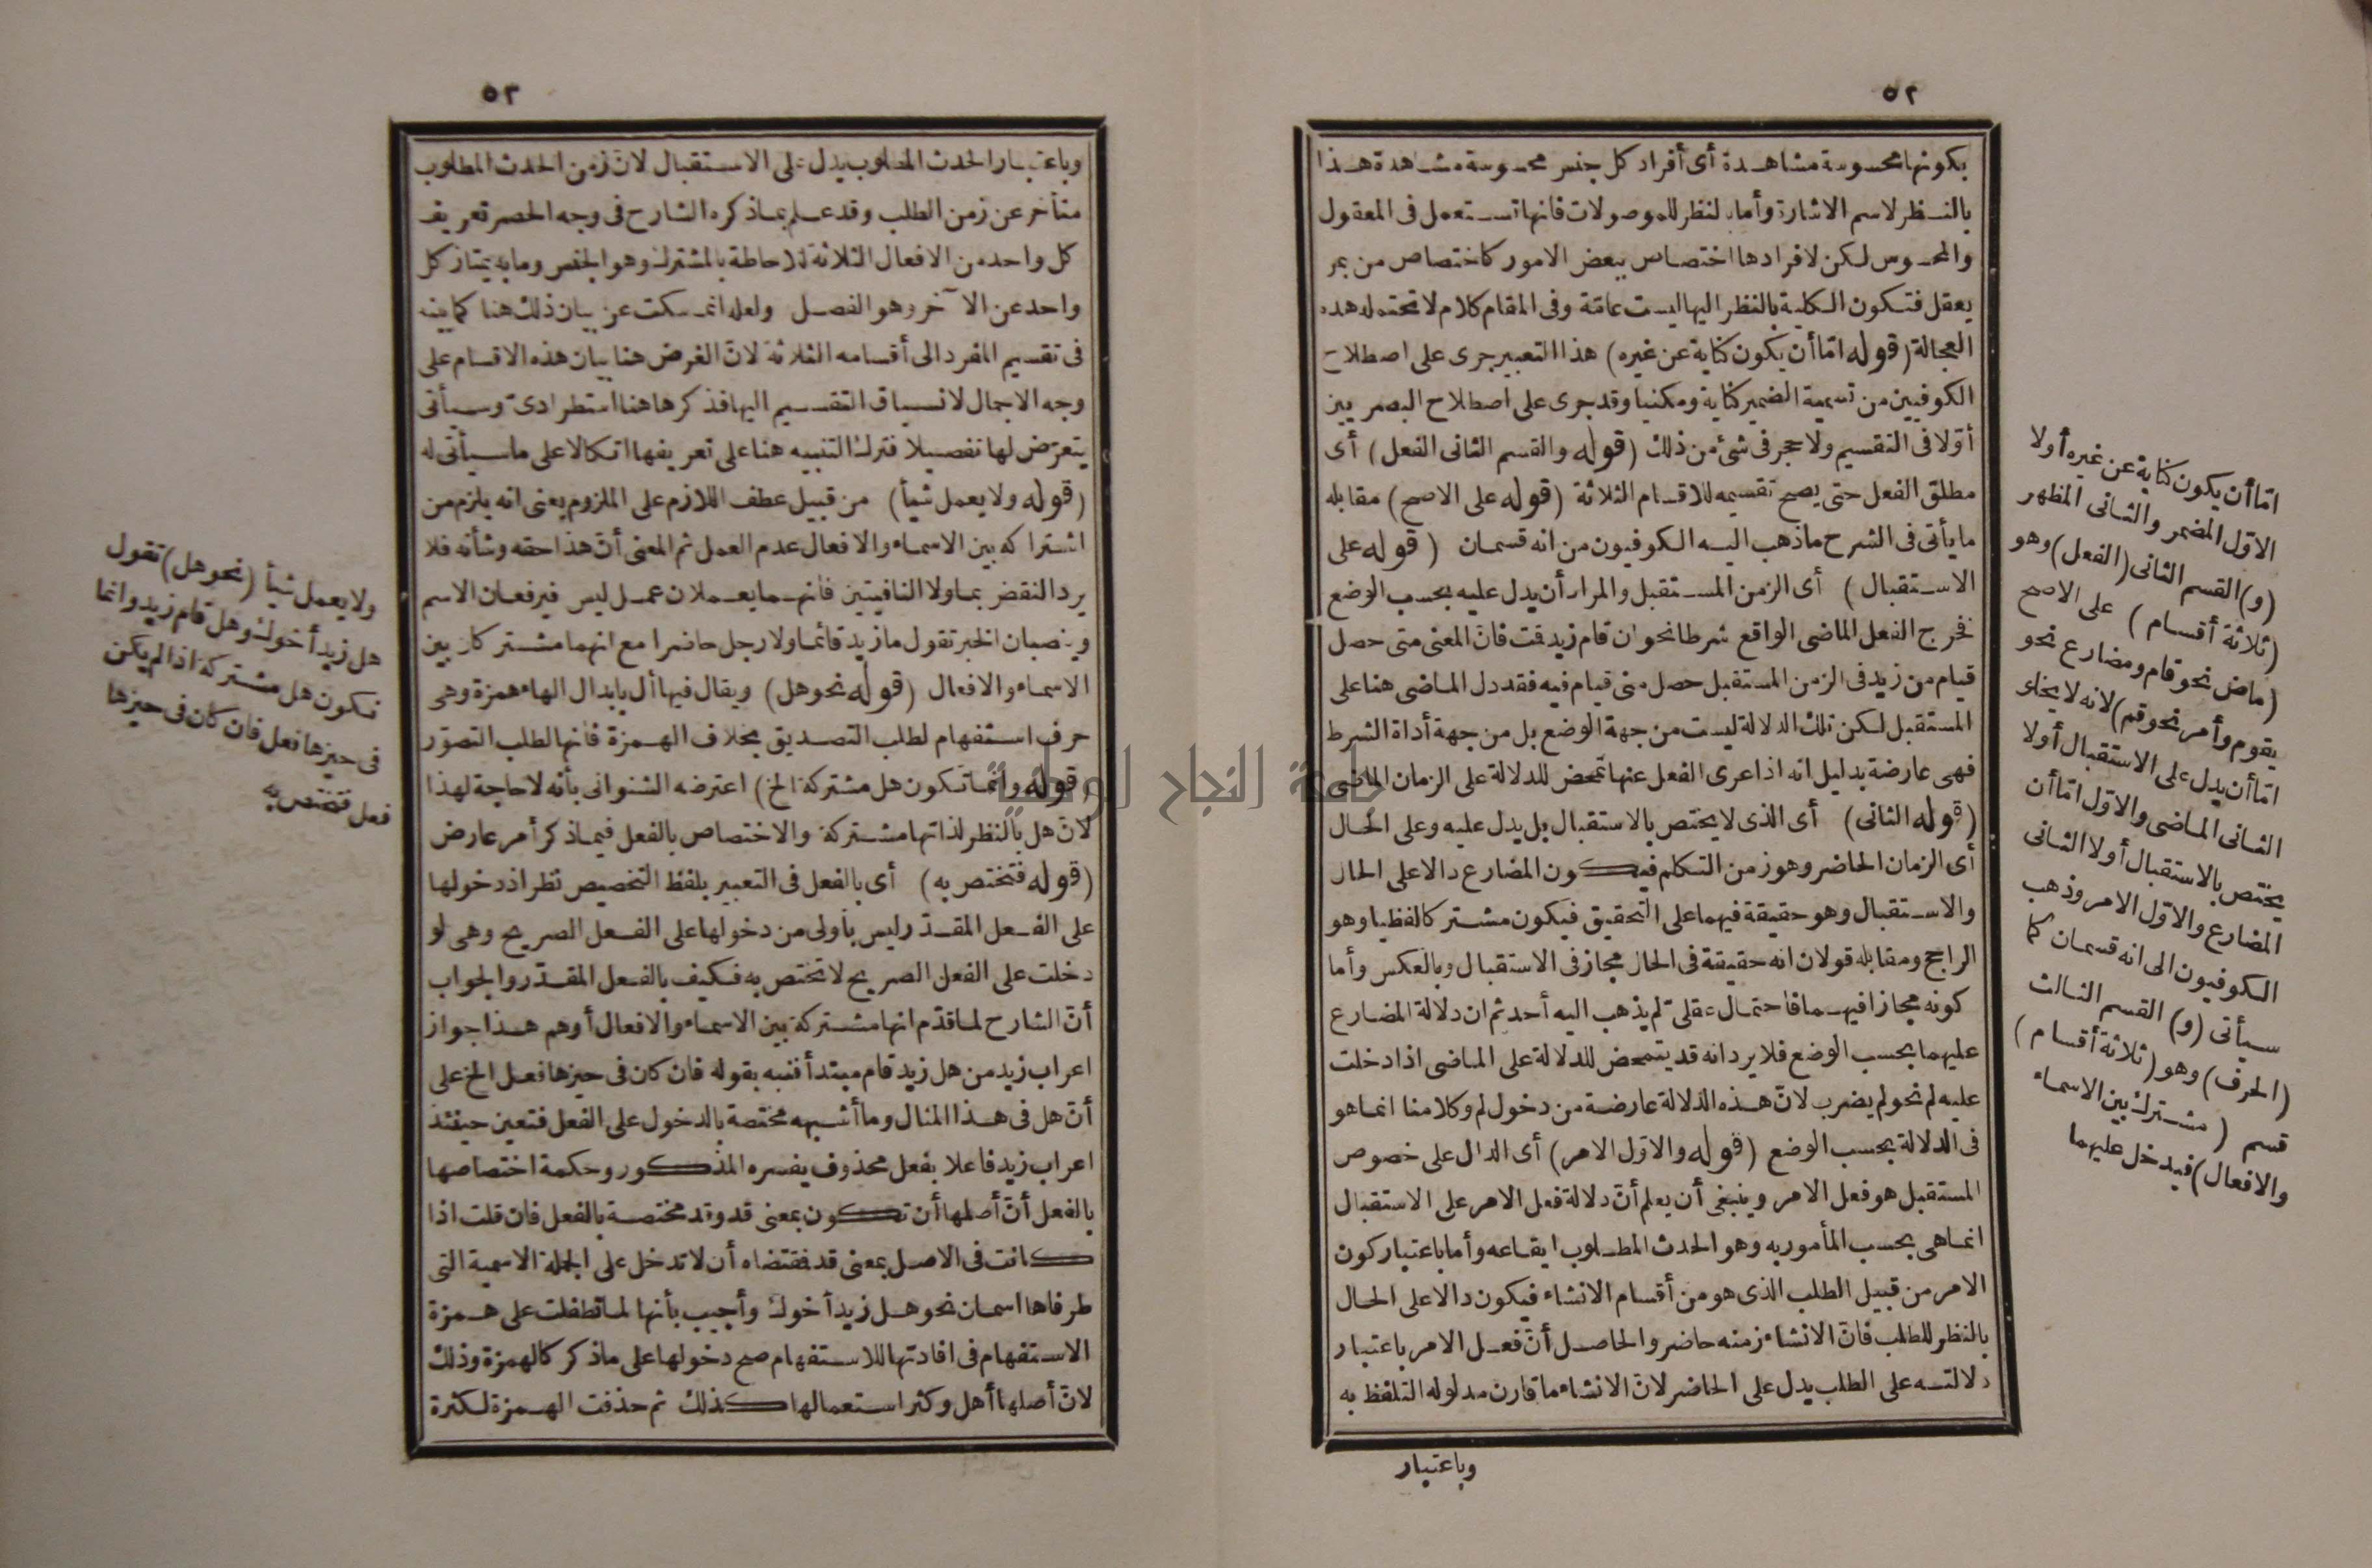 ٥٢
بكونها محسوسة مشاهدة أى أفراد كل جنس محسوسة مشاهدة هذا
بالنظر لاسم الاشارة وأما بالنظر للموصولات فانها تستعمل فى المعقول
والمحسوس لكن لافرادها اختصاص ببعض الامور كاختصاص من بمن
يعقل فتكون الكلية بالنظر اليها ليست عامّة وفى المقام كلام لا تحتمله هذه
العجالة (قوله امّا أن يكون كناية عن غيره) هذا التعبير جرى على اصطلاح
الكوفيين من تسمية الضمير كناية ومكنيا وقد جرى على اصطلاح البصريين
أوّلا فى التقسيم ولا حجر فى شئ من ذلك (قوله والقسم الثانى الفعل) أى
مطلق الفعل حتى يصح تقسيمه للاقسام الثلاثة (قوله على الاصح) مقابله
ما يأتى فى الشرح ماذهب اليه الكوفيون من انه قسمان (قوله على
الاستقبال) أى الزمن المستقبل والمراد أن يدل عليه بحسب الوضع
فخرج الفعل الماضى الواقع شرطا نحو ان قام زيد قمت فانّ المعنى متى حصل
قيام من زيد فى الزمن المستقبل حصل منى قيام فيه فقد دل الماضى هنا على
المستقبل لكن تلك الدلالة ليست من جهة الوضع بل من جهة أداة الشرط
فهى عارضة بدليل انه اذا عرى الفعل عنها تمحض للدلالة على الزمان الماضى
(قوله الثانى) أى الذى لا يختص بالاستقبال بل يدل عليه وعلى الحال
أى الزمان الحاضر وهو زمن التكلم فيكون المضارع دالا على الحال
والاستقبال وهو حقيقة فيهما على التحقيق فيكون مشتركا لفظيا وهو
الراجح ومقابله قولان انه حقيقة فى الحال مجاز فى الاستقبال وبالعكس وأما
كونه مجازا فيهما فاحتمال عقلىّ لم يذهب اليه أحد ثم ان دلالة المضارع
عليهما بحسب الوضع فلا يرد انه قد يتمحض للدلالة على الماضى اذا دخلت
عليه لم نحو لم يضرب لانّ هذه الدلالة عارضة من دخول لم وكلامنا انما هو
فى الدلالة بحسب الوضع (قوله والاوّل الامر) أى الدال على خصوص
المستقبل هو فعل الامر وينبغى أن يعلم أنّ دلالة فعل الامر على الاستقبال
انما هى بحسب المأمور به وهو الحدث المطلوب ايقاعه وأما باعتبار كون
الامر من قبيل الطلب الذى هو من أقسام الانشاء فيكون دالا على الحال
بالنظر للطلب فانّ الانشاء زمنه حاضر والحاصل أنّ فعل الامر باعتبار
دلالته على الطلب يدل على الحاضر لانّ الانشاء ما قارن مدلوله التلفظ به
وباعتبار
امّا أن يكون كناية عن غيره أولا
الاوّل المضمر والثانى المظهر
(و) القسم الثانى (الفعل) وهو
(ثلاثة أقسام) على الاصح
(ماض نحو قام ومضارع نحو
يقوم وأمر نحو قم) لانه لا يخلو
امّا أن يدل على الاستقبال أولا
الثانى الماضى والاوّل امّا أن
يختص بالاستقبال أولا الثانى
المضارع والاوّل الامر وذهب
الكوفيون الى انه قسمان كما
سيأتى (و) القسم الثالث
(الحرف) وهو (ثلاثة أقسام)
قسم (مشترك بين الاسماء
والافعال) فيدخل عليهما
٥٣
وباعتبار الحدث المطلوب يدل على الاستقبال لانّ زمن الحدث المطلوب
متأخر عن زمن الطلب وقد علم بماذكره الشارح فى وجه الحصر تعريف
كل واحد من الافعال الثلاثة للاحاطة بالمشترك وهو الجنس وما به يمتاز كل
واحد عن الآخر وهو الفصل ولعله انما سكت عن بيان ذلك هنا كما بينه
فى تقسيم المفرد الى أقسامه الثلاثة لانّ الغرض هنا بيان هذه الاقسام على
وجه الاجمال لانسياق التقسيم اليها فذكرها هنا استطرادىّ وسيأتى
يتعرّض لها تفصيلا فترك التنبيه هنا على تعريفها اتكالا على ما سيأتى له
(قوله ولا يعمل شيأ) من قبيل عطف اللازم على الملزوم يعنى انه يلزم من
اشتراكه بين الاسماء والافعال عدم العمل ثم المعنى أنّ هذا حقه وشأنه فلا
يرد النقض بما ولا النافيتين فانهما يعملان عمل ليس فيرفعان الاسم
وينصبان الخبر تقول ما زيد قائما ولا رجل حاضرا مع انهما مشتركان بين
الاسماء والافعال (قوله نحو هل) ويقال فيها أل بابدال الهاء همزة وهى
حرف استفهام لطلب التصديق بخلاف الهمزة فانها لطلب التصوّر
(قوله وانما تكون هل مشتركة الخ) اعترضه الشنوانى بأنه لا حاجة لهذا
لانّ هل بالنظر لذاتها مشتركة والاختصاص بالفعل فيما ذكر أمر عارض
(قوله فتختص به) أى بالفعل فى التعبير بلفظ التخصيص نظر اذ دخولها
على الفعل المقدّر ليس بأولى من دخولها على الفعل الصريح وهى لو
دخلت على الفعل الصريح لا تختص به فكيف بالفعل المقدّر والجواب
أنّ الشارح لما قدّم انها مشتركة بين الاسماء والافعال أوهم هذا جواز
اعراب زيد من هل زيد قام مبتدأ فنبه بقوله فان كان فى حيزها فعل الخ على
أنّ هل فى هذا المثال وما أشبهه مختصة بالدخول على الفعل فتعين حينئذ
اعراب زيد فاعلا بفعل محذوف يفسره المذكور وحكمة اختصاصها
بالفعل أنّ أصلها أن تكون بمعنى قد وقد مختصة بالفعل فان قلت اذا
كانت فى الاصل بمعنى قد فقتضاه أن لا تدخل على الجملة الاسمية التى
طرفاها اسمان نحو هل زيد أخوك وأجيب بأنها لما تطفلت على همزة
الاستفهام فى افادتها للاستفهام صح دخولها على ماذكر كالهمزة وذلك
لانّ أصلها أهل وكثر استعمالها كذلك ثم حذفت الهمزة لكثرة
ولا يعمل شيأ (نحو هل) تقول
هل زيد أخوك وهل قام زيد وانما
تكون هل مشتركة اذا لم يكن
فى حيزها فعل فان كان فى حيزها
فعل فتختص به
جامعة النجاح الوطنية